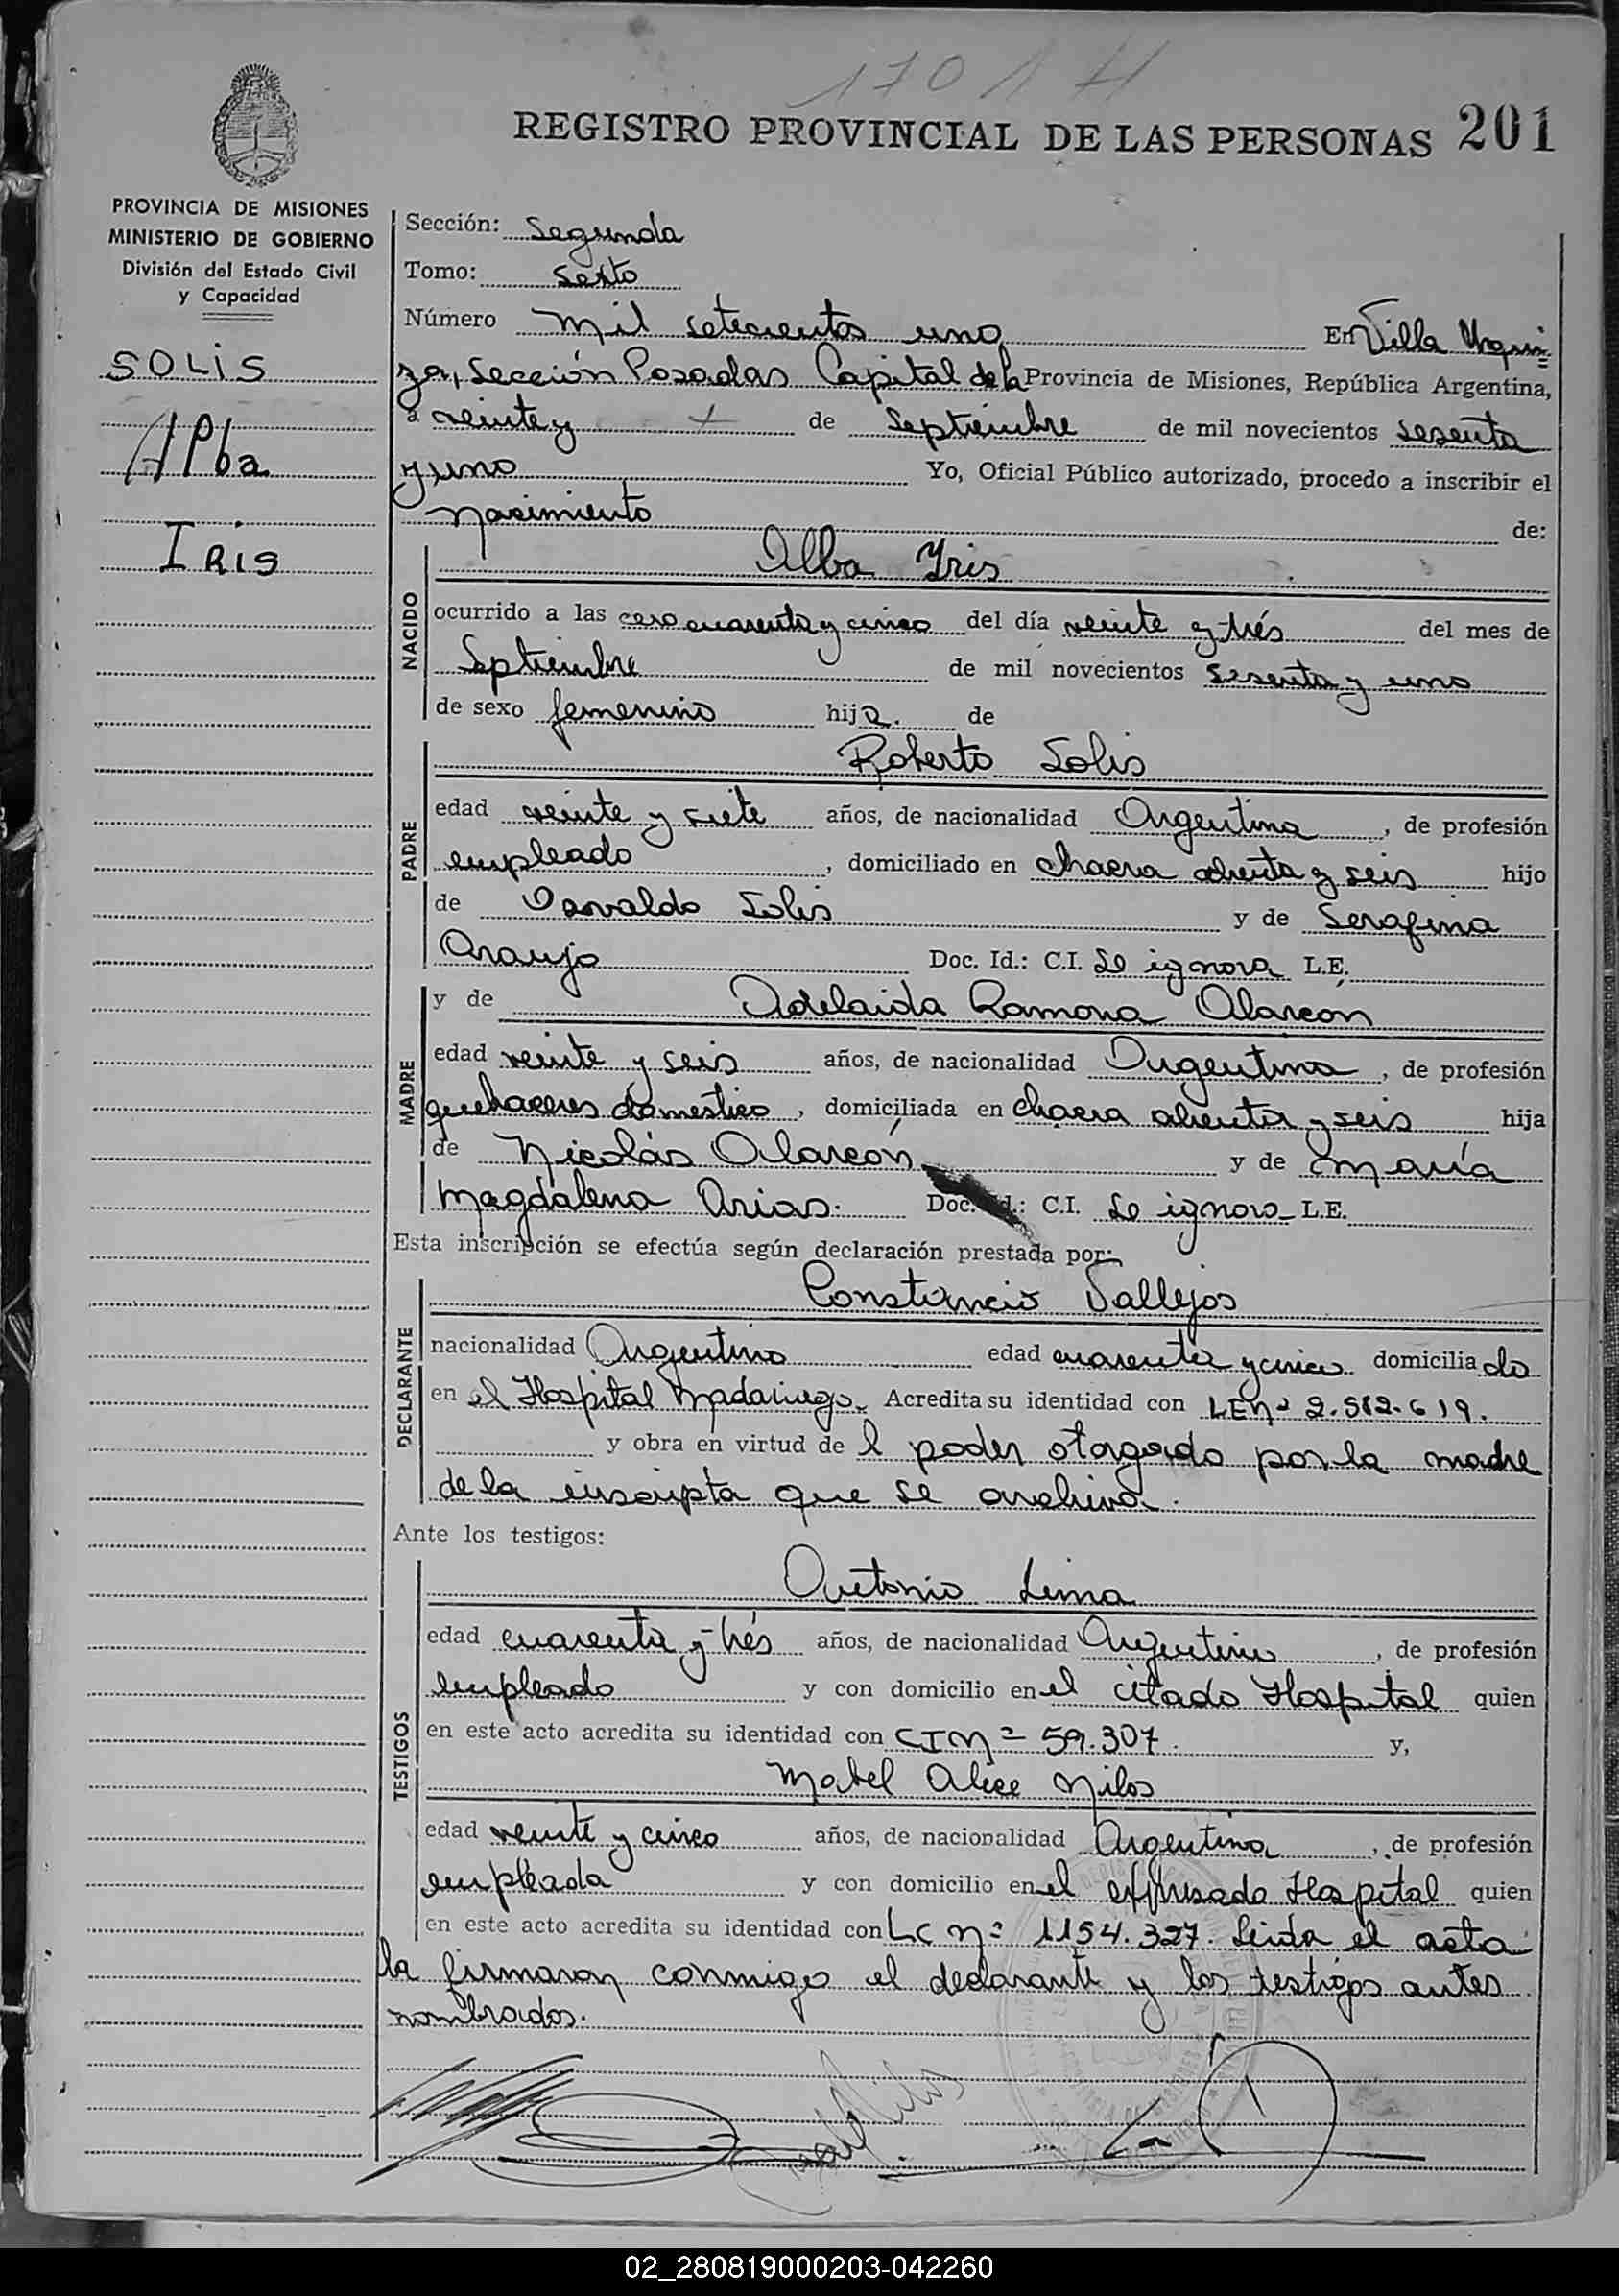 1701 H
REGISTRO PROVINCIAL DE LAS PERSONAS 201
PROVINCIA DE MISIONES
MINISTERIO DE GOBIERNO
División del Estado Civil
y Capacidad
SOLIS
Alba
IRIS
Sección: Segunda
Tomo: Sexto
Número mil setecientos uno En Villa Urqui=
za, Sección Posadas Capital de la Provincia de Misiones, República Argentina,
a veinte y de Septiembre de mil novecientos sesenta
y uno Yo, Oficial Público autorizado, procedo a inscribir el
nacimiento de:
NACIDO
Alba Yris
ocurrido a las cero cuarenta y cinco del día veinte y trés del mes de
Septiembre de mil novecientos sesenta y uno
de sexo femenino hija. de
PADRE
Roberto Solis
edad veinte y siete años, de nacionalidad Argentina, de profesión
empleado, domiciliado en chacra ochenta y seis hijo
de Osvaldo Solis y de Serafina
Araujo Doc. Id.: C.I. Se ignora L.E.
MADRE
y de Adelaida Ramona Alarcón
edad veinte y seis años, de nacionalidad Argentina, de profesión
quehaceres domestico, domiciliada en chacra ochenta y seis hija
de Nicolás Alarcón y de María
Magdalena Arias. Doc. Id.: C.I. Se ignora L.E.
Esta inscripción se efectúa según declaración prestada por:
DECLARANTE
Constancio Vallejos
nacionalidad Argentino edad cuarenta y cinco domiciliado
en el Hospital Madariaga. Acredita su identidad con LE nº 2.582.619.
y obra en virtud de l poder otorgado por la madre
de la inscripta que se archiva.
Ante los testigos:
TESTIGOS
Antonio Lima
edad cuarenta y trés años, de nacionalidad Argentino, de profesión
empleado y con domicilio en el citado Hospital quien
en este acto acredita su identidad con CI Nº 59.307. y,
Mabel Alice Milos
edad veinte y cinco años, de nacionalidad Argentina, de profesión
empleada y con domicilio en el expresado Hospital quien
en este acto acredita su identidad con LC nº 1154.327. Leida el acta
la firmaron conmigo el declarante y los testigos antes
nombrados.
02_280819000203-042260